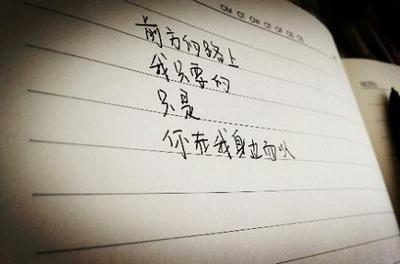 前方的路上
我只要的
只是
你在我身边而以
NOTES